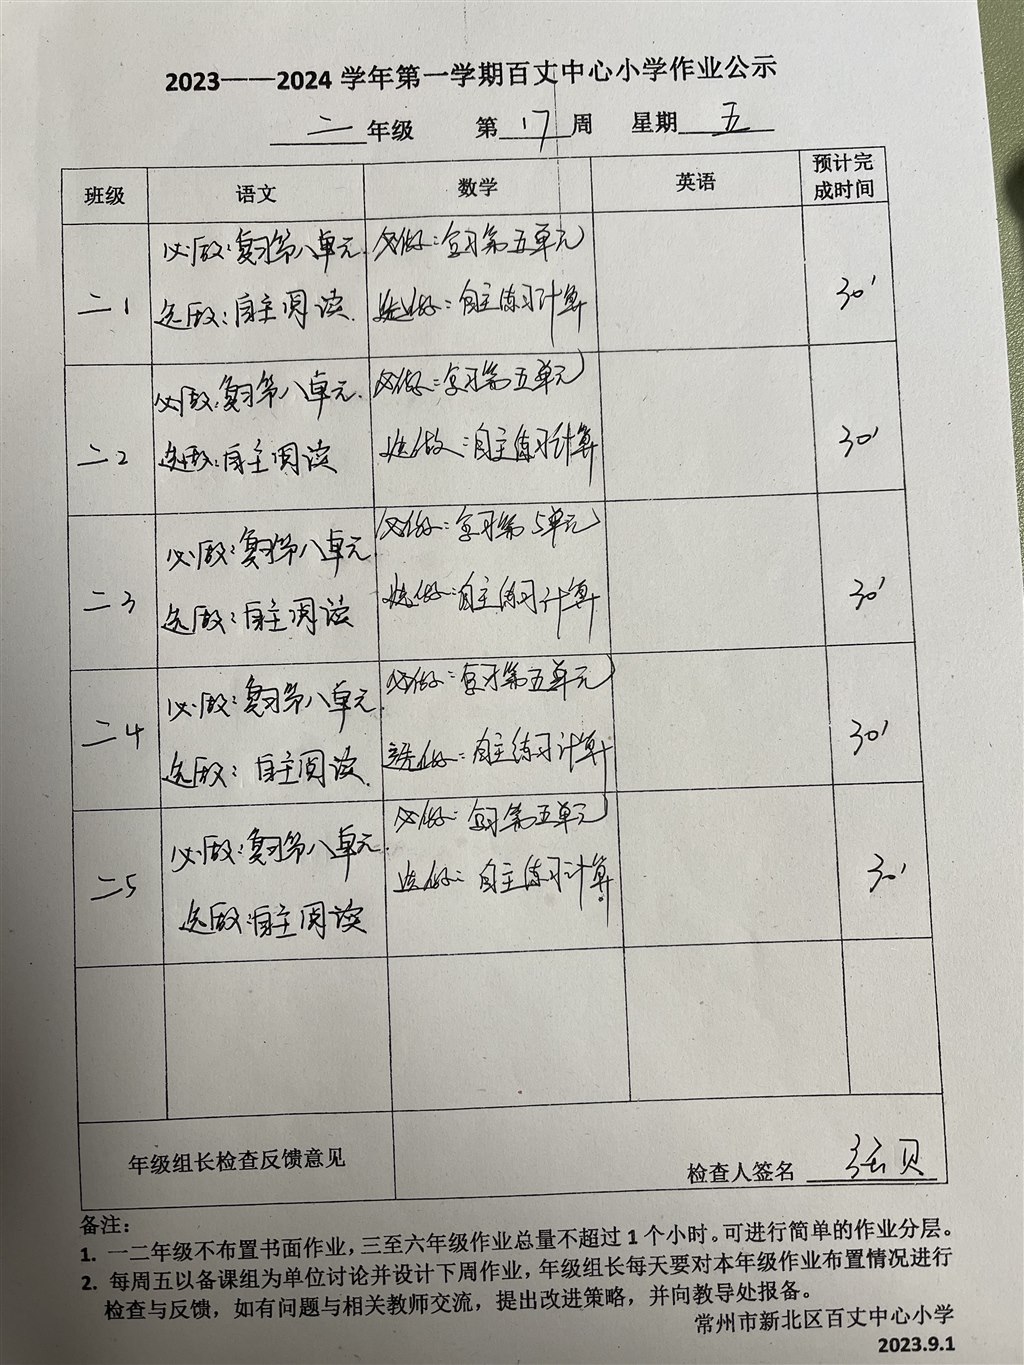 2023——2024 学年第一学期百丈中心小学作业公示
二 年级 第 17 周 星期 五
班级 语文 数学 英语 预计完成时间
二1 必做:复习第八单元. 必做:复习第五单元 30'
选做:自主阅读. 选做:自主练习计算
二2 必做:复习第八单元. 必做:复习第五单元 30'
选做:自主阅读 选做:自主练习计算
二3 必做:复习第八单元 必做:复习第5单元 30'
选做:自主阅读 选做:自主练习计算
二4 必做:复习第八单元. 必做:复习第五单元 30'
选做:自主阅读. 选做:自主练习计算
二5 必做:复习第八单元. 必做:复习第五单元 30'
选做:自主阅读 选做:自主练习计算
年级组长检查反馈意见 检查人签名
备注:
1. 一二年级不布置书面作业，三至六年级作业总量不超过 1 个小时。可进行简单的作业分层。
2. 每周五以备课组为单位讨论并设计下周作业，年级组长每天要对本年级作业布置情况进行
检查与反馈，如有问题与相关教师交流，提出改进策略，并向教导处报备。
常州市新北区百丈中心小学
2023.9.1